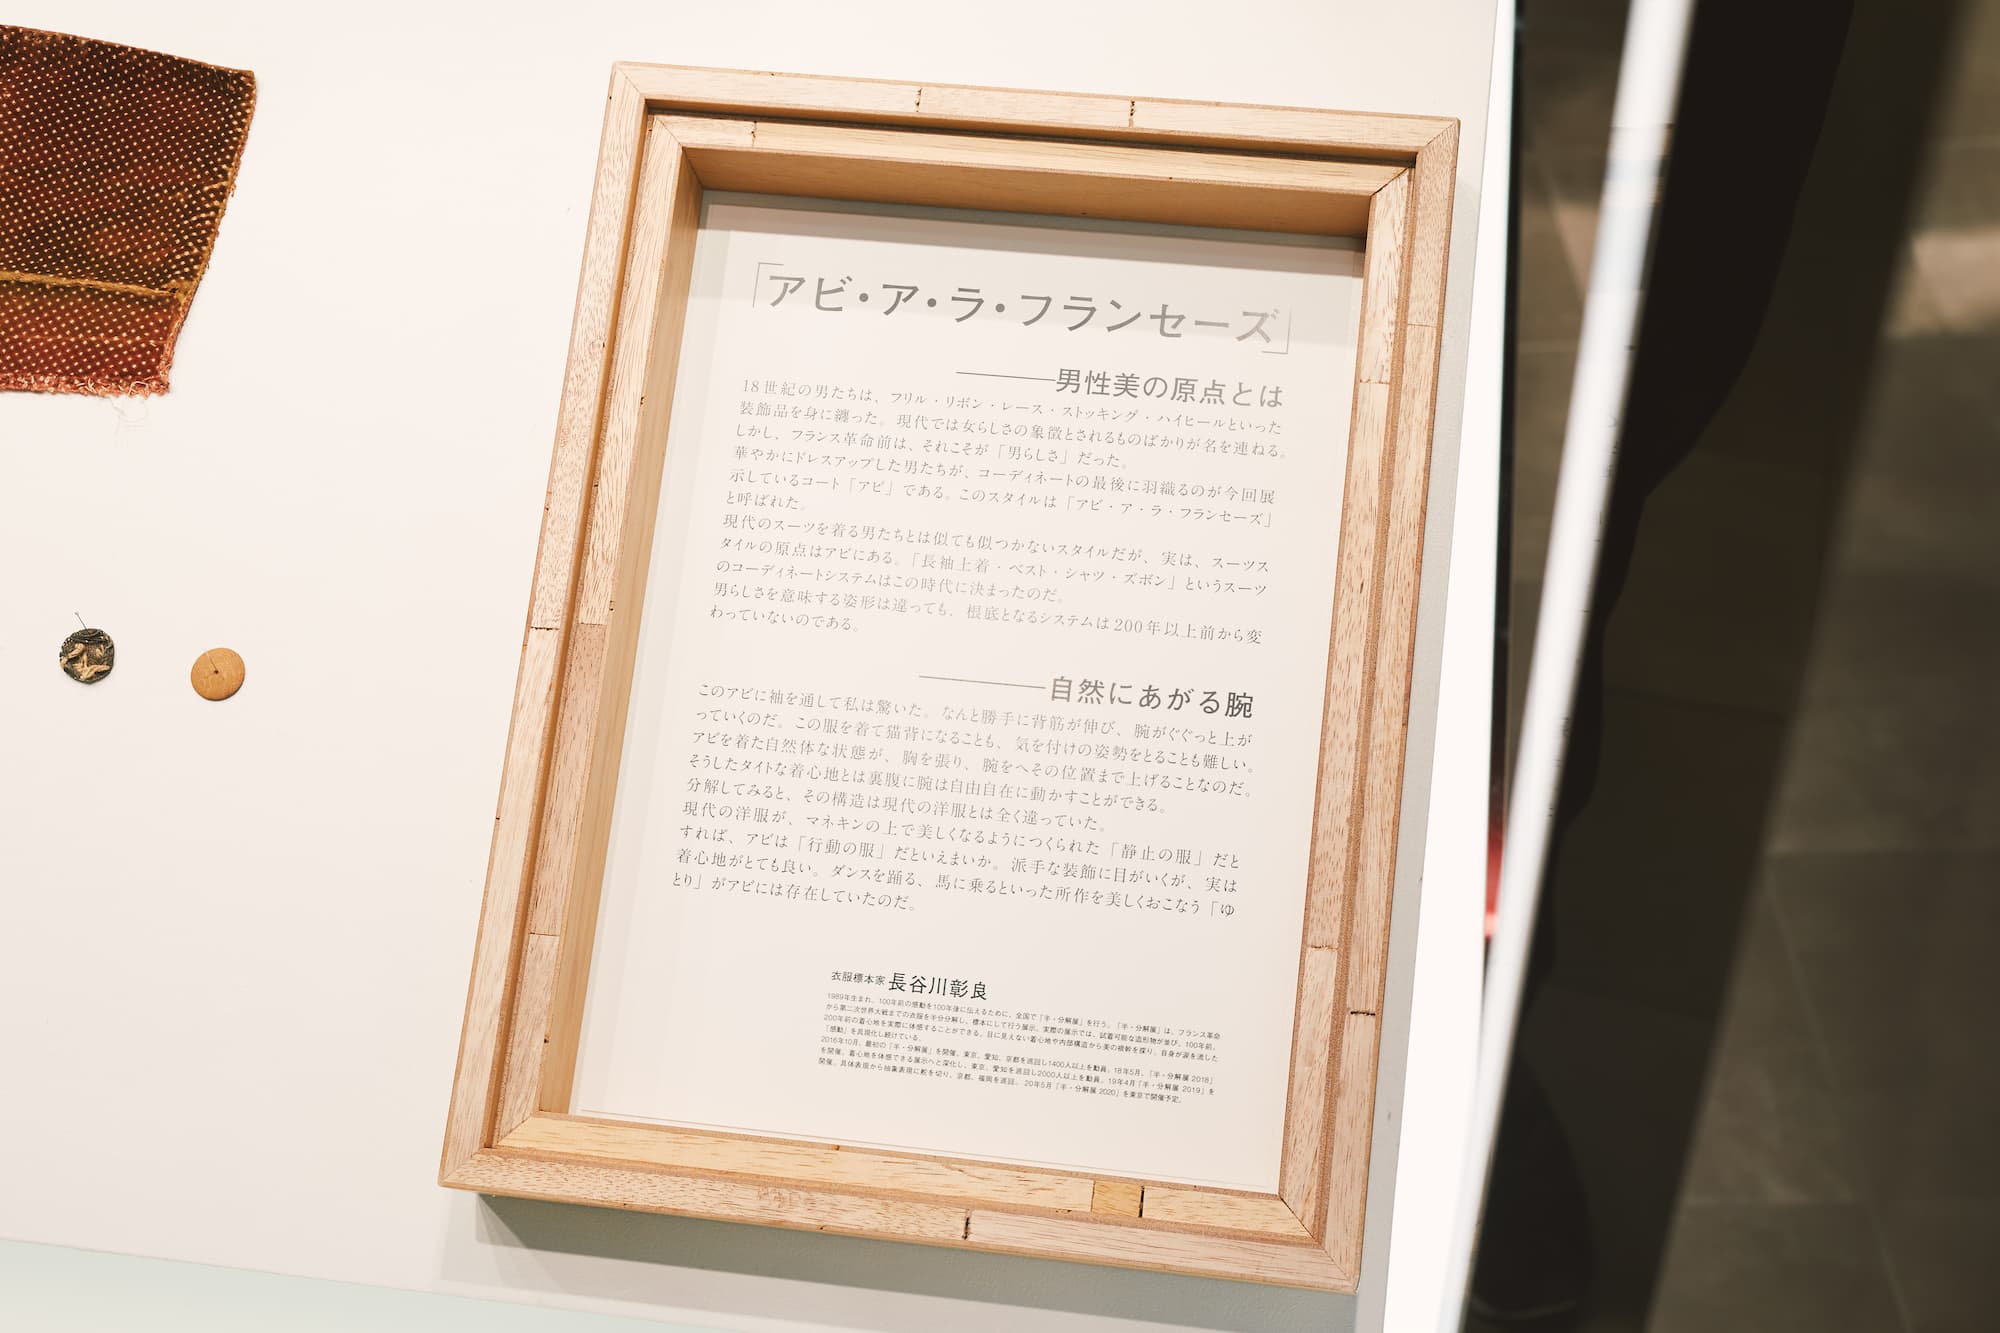 「アビ・ア・ラ・フランセーズ」
———男性美の原点とは
18世紀の男たちは、フリル・リボン・レース・ストッキング・ハイヒールといった
装飾品を身に纏った。現代では女らしさの象徴とされるものばかりが名を連ねる。
しかし、フランス革命前は、それこそが「男らしさ」だった。
華やかにドレスアップした男たちが、コーディネートの最後に羽織るのが今回展
示しているコート「アビ」である。このスタイルは「アビ・ア・ラ・フランセーズ」
と呼ばれた。
現代のスーツを着る男たちとは似ても似つかないスタイルだが、実は、スーツス
タイルの原点はアビにある。「長袖上着・ベスト・シャツ・ズボン」というスーツ
のコーディネートシステムはこの時代に決まったのだ。
男らしさを意味する姿形は違っても、根底となるシステムは200年以上前から変
わっていないのである。
———自然にあがる腕
このアビに袖を通して私は驚いた。なんと勝手に背筋が伸び、腕がぐぐっと上が
っていくのだ。この服を着て猫背になることも、気を付けの姿勢をとることも難しい。
アビを着た自然体な状態が、胸を張り、腕をへその位置まで上げることなのだ。
そうしたタイトな着心地とは裏腹に腕は自由自在に動かすことができる。
分解してみると、その構造は現代の洋服とは全く違っていた。
現代の洋服が、マネキンの上で美しくなるようにつくられた「静止の服」だと
すれば、アビは「行動の服」だといえまいか。派手な装飾に目がいくが、実は
着心地がとても良い。ダンスを踊る、馬に乗るといった所作を美しくおこなう「ゆ
とり」がアビには存在していたのだ。
衣服標本家 長谷川彰良
1989年生まれ。100年前の感動を100年後に伝えるために、全国で「半・分解展」を行う。「半・分解展」は、フランス革命
から第二次世界大戦までの衣服を半分分解し、標本にして行う展示。実際の展示では、試着可能な造形物が並び、100年前、
200年前の着心地を実際に体感することができる。目に見えない着心地や内部構造から美の根幹を探り、自身が涙を流した
「感動」を具現化し続けている。
2016年10月、最初の「半・分解展」を開催。東京、愛知、京都を巡回し1400人以上を動員。18年5月、「半・分解展 2018」
を開催。着心地を体感できる展示へと深化し、東京、愛知を巡回し2000人以上を動員。19年4月「半・分解展 2019」を
開催。具体表現から抽象表現に舵を切り、京都、福岡を巡回。20年5月「半・分解展 2020」を東京で開催予定。